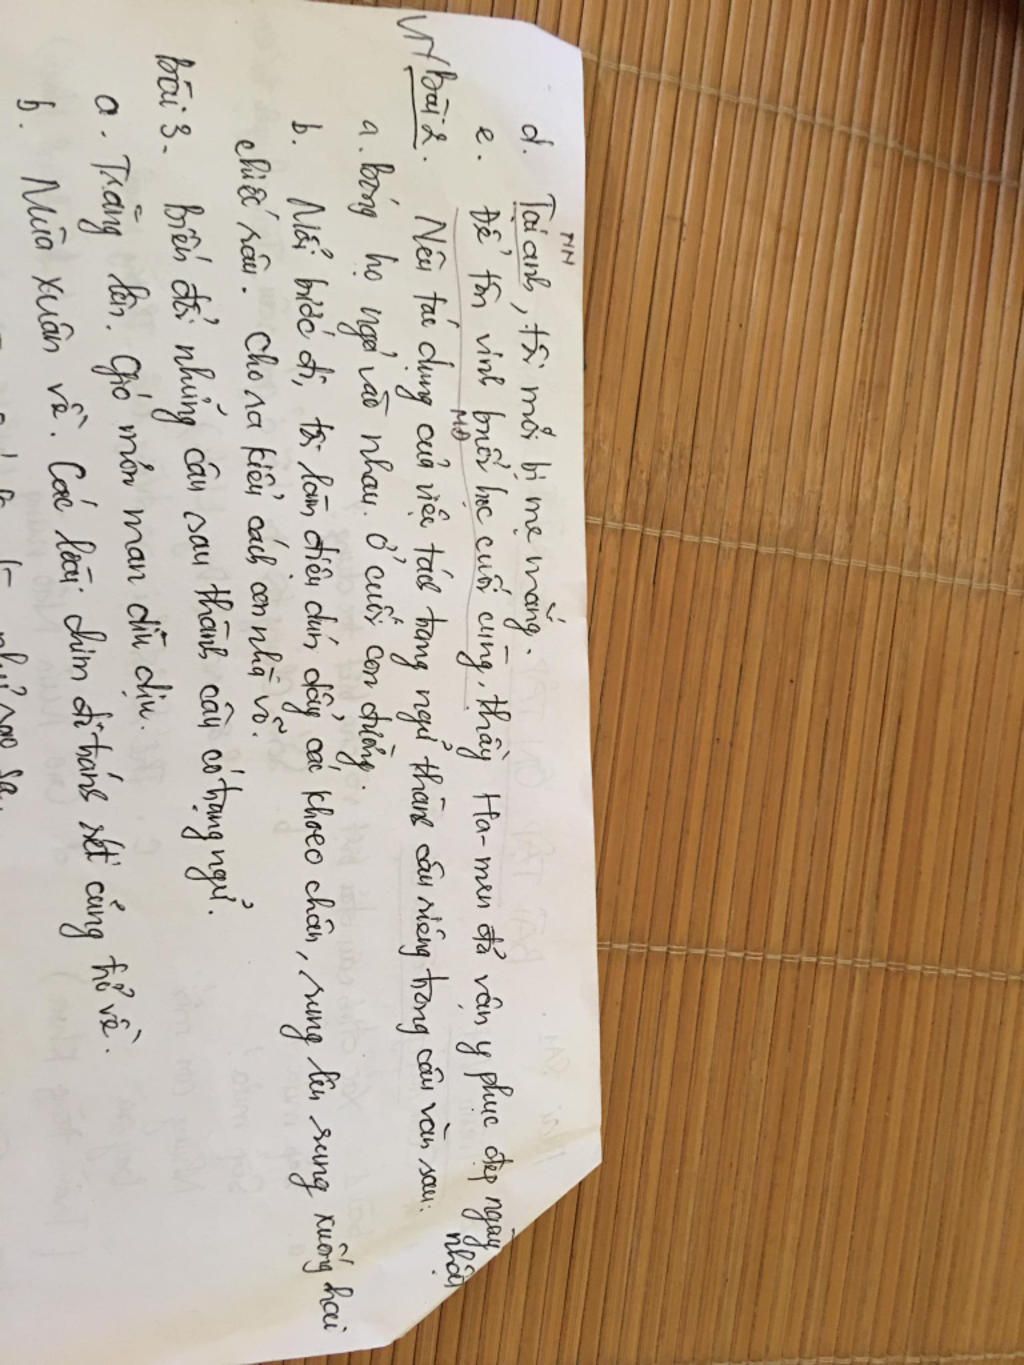 NN
d. Tại anh, tôi mới bị mẹ mắng.
e. Để tôn vinh buổi học cuối cùng, thầy Ha-men đã vận y phục đẹp ngày
MĐ
nhật
VN bài 2. Nêu tác dụng của việc tách trạng ngữ thành câu riêng trong câu văn sau:
a. bóng họ ngả vào nhau. Ở cuối con đường.
b. Mỗi bước đi, tôi làm điệu dún dẩy các khoeo chân, rung lên rung xuống hai
chiếc râu. Cho ra kiểu cách con nhà võ.
bài 3. Biến đổi những câu sau thành câu có trạng ngữ.
a. Trăng lên. Gió mơn man dìu dịu.
b. Mùa xuân về. Các loài chim đi tránh rét cũng trở về.
như sao sa.